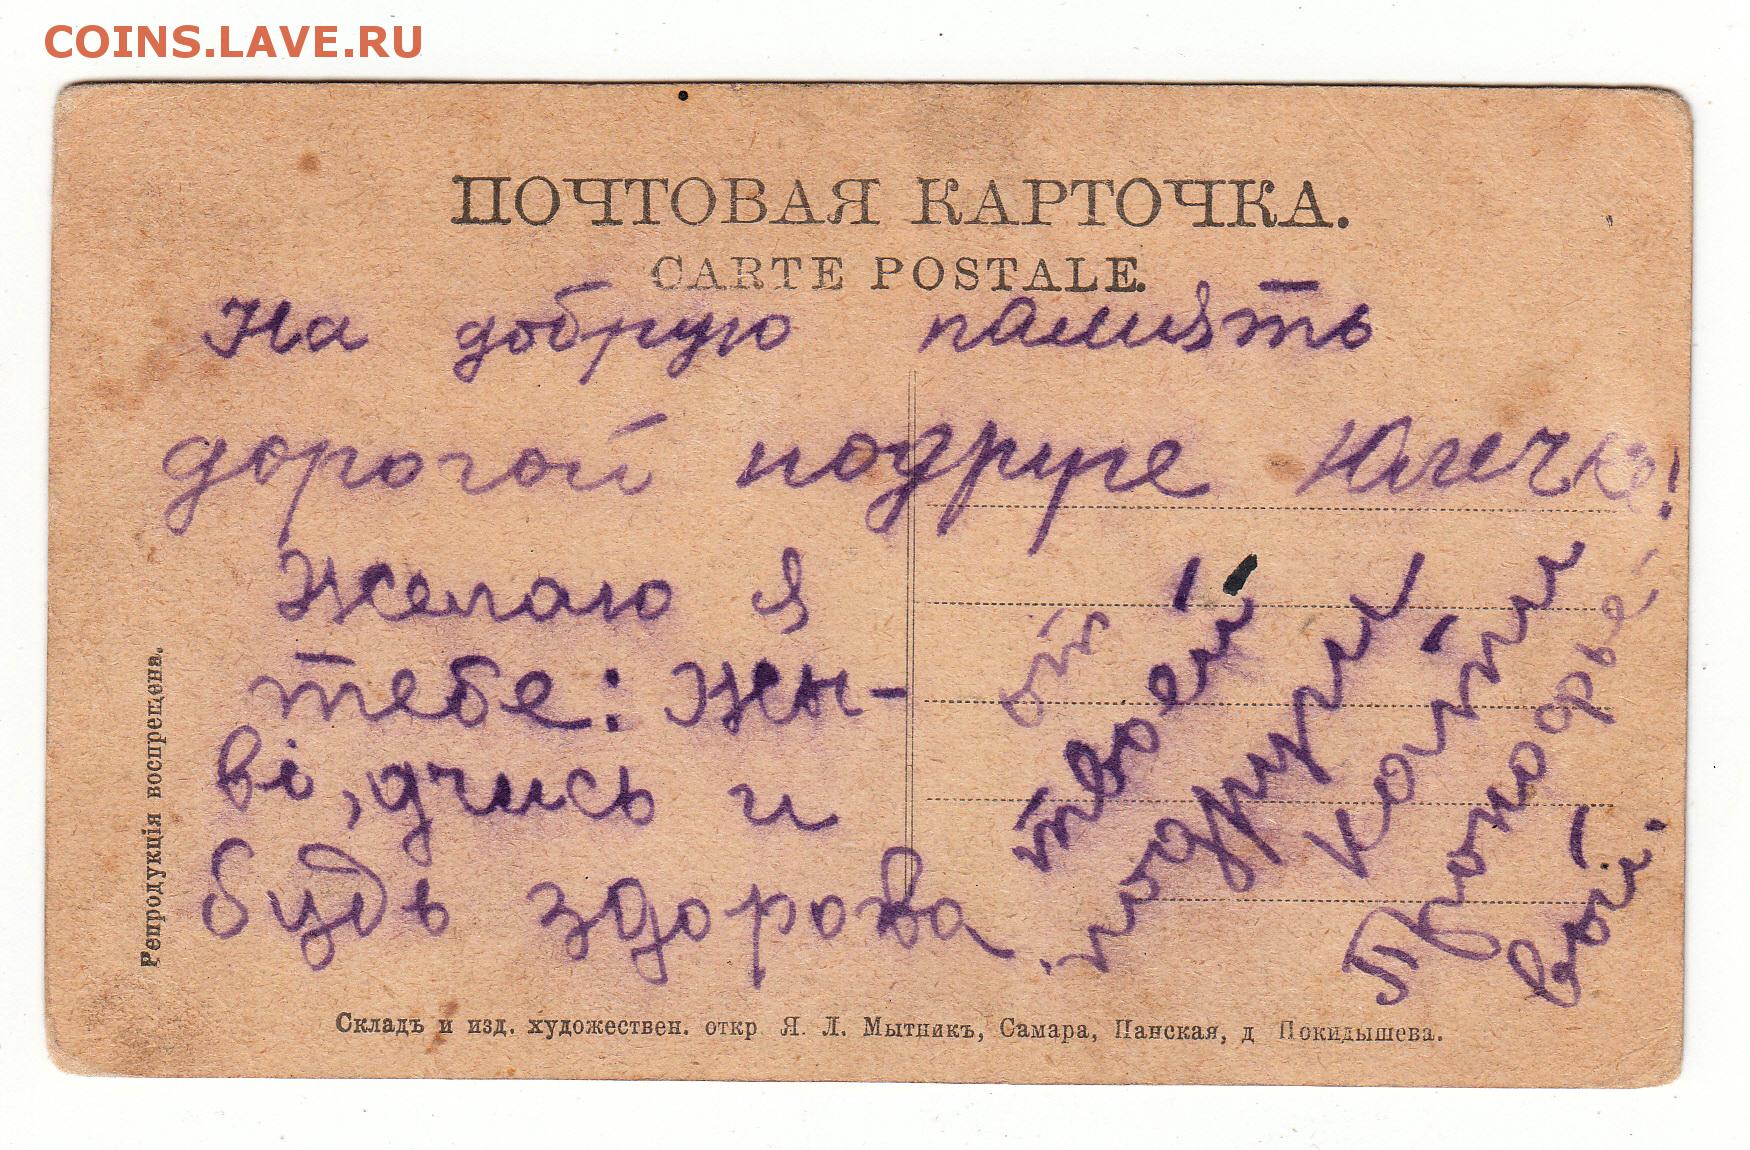 COINS.LAVE.RU
ПОЧТОВАЯ КАРТОЧКА.
CARTE POSTALE.
На добрую память
дорогой подруге Юлечке!
Желаю я
тебе: Жи-
ви, учись и
будь здорова
от
твоей
подруги
Репродукція воспрещена.
Складъ и изд. художествен. откр Я. Л. Мытникъ, Самара, Панская, д Покидышева.